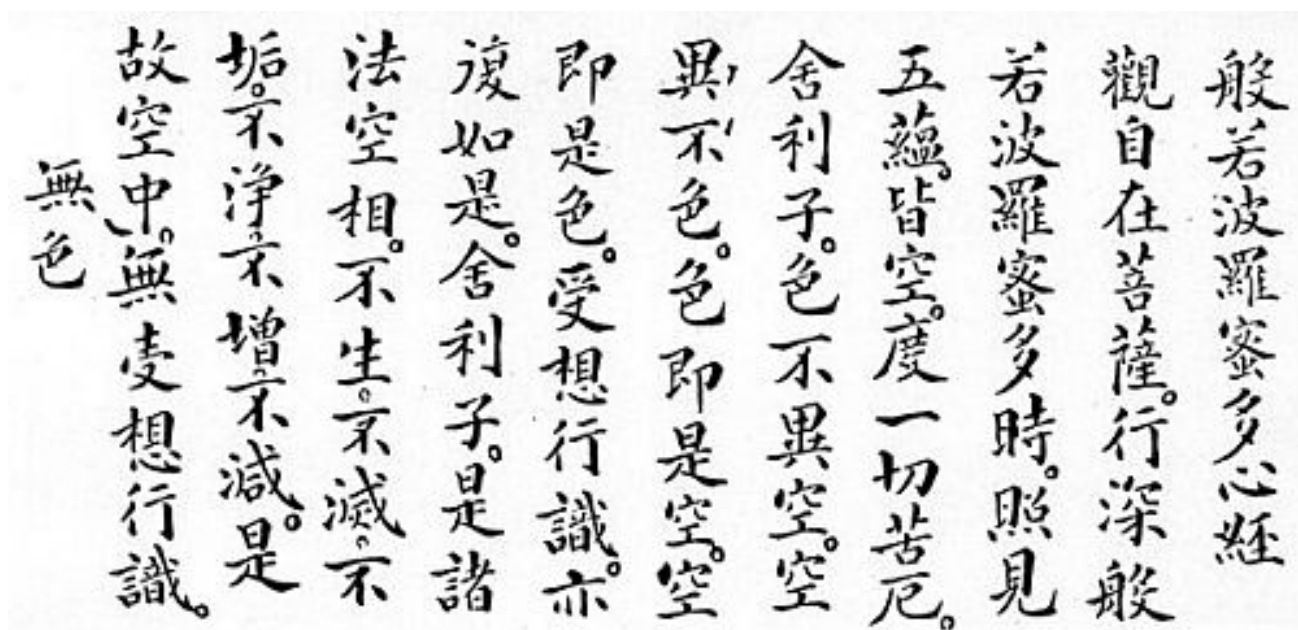 般若波羅蜜多心経
觀自在菩薩。行深般
若波羅蜜多時。照見
五蘊。皆空。度一切苦厄。
舍利子。色不異空。空
異不色。色即是空。空
即是色。受想行識。亦
復如是。舍利子。是諸
法空相。不生。不滅。不
垢。不淨。不增。不減。是
故空中。無受想行識。
無色